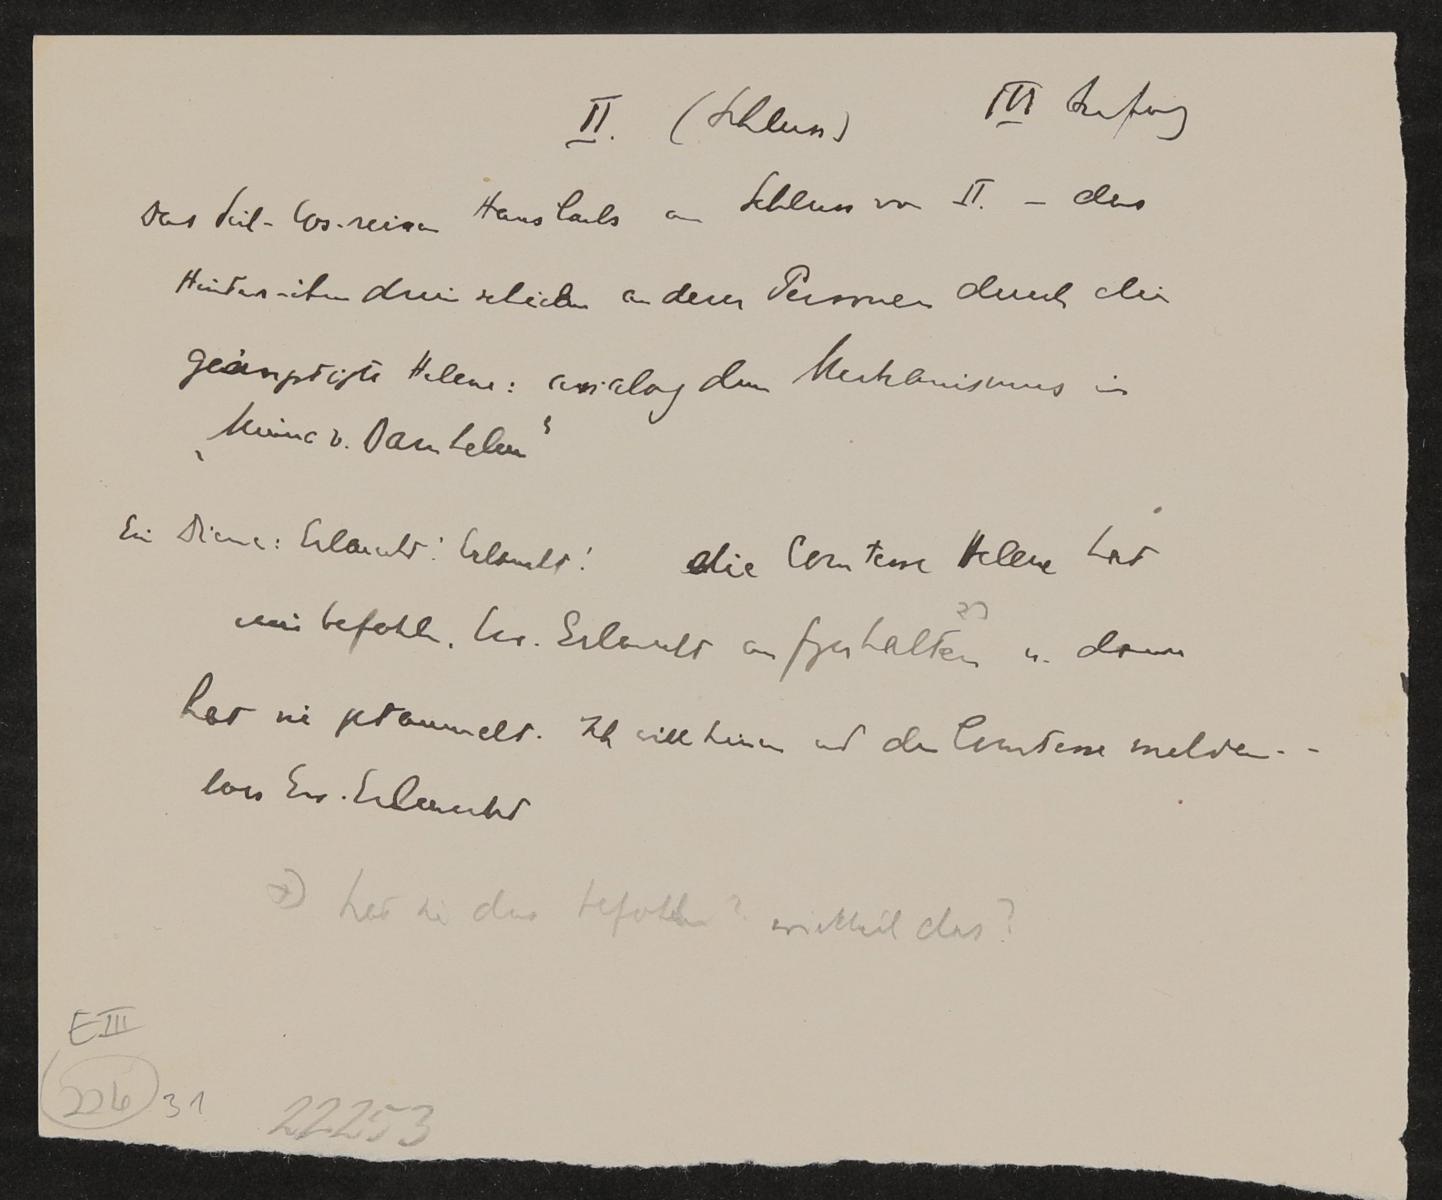 II. (Schluss) III Anfang
Das Teil- Los-reissen Hans Carls am Schluss von II. – das
Hinter-ihm drein schicken anderer Personen durch die
geängstigte Helene: analog dem Mechanismus in
„Minna v. Barnhelm"
Ein Diener: Erlaucht! Erlaucht! die Comtesse Helene hat
mir befohlen, Ew. Erlaucht aufzuhalten u. dann
hat sie gestammelt. Ich will hinein und der Comtesse melden - -
dass Ew. Erlaucht
hat sie das befohlen? wie hiel das?
E III
226 31
22253